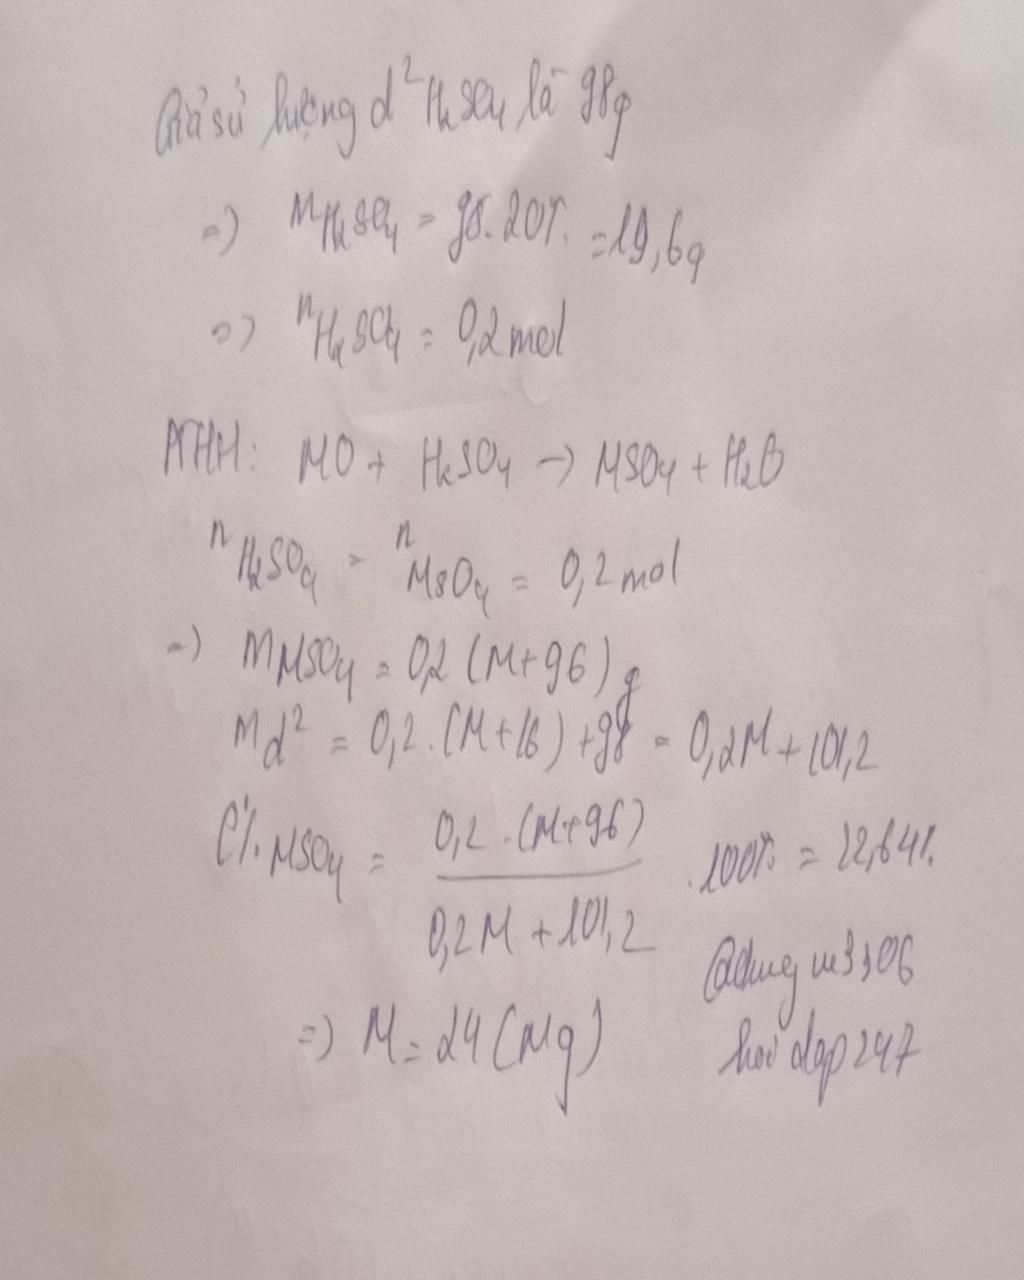 Giả sử lượng d² H₂SO₄ là 98g
=) mH₂SO₄ = 98.20% = 19,6g
=) nH₂SO₄ = 0,2 mol
PTHH: MO + H₂SO₄ -> MSO₄ + H₂O
nH₂SO₄ = nMSO₄ = 0,2 mol
=) mMSO₄ = 0,2 (M+96) g
md² = 0,2.(M+16) +98 = 0,2M + 101,2
C% MSO₄ = 0,2.(M+96) / 0,2M + 101,2 .100% = 22,64%
=) M = 24 (Mg)
hoidap247